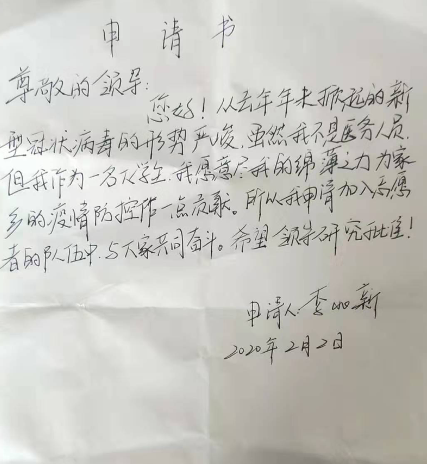 申请书
尊敬的领导:
您好！从去年年末掀起的新
型冠状病毒的形势严峻,虽然我不是医务人员,
但我作为一名大学生,我愿意尽我的绵薄之力为家
乡的疫情防控作一点贡献。所以我申请加入志愿
者的队伍中,与大家共同奋斗。希望领导研究批准！
申请人:李 新
2020年2月2日